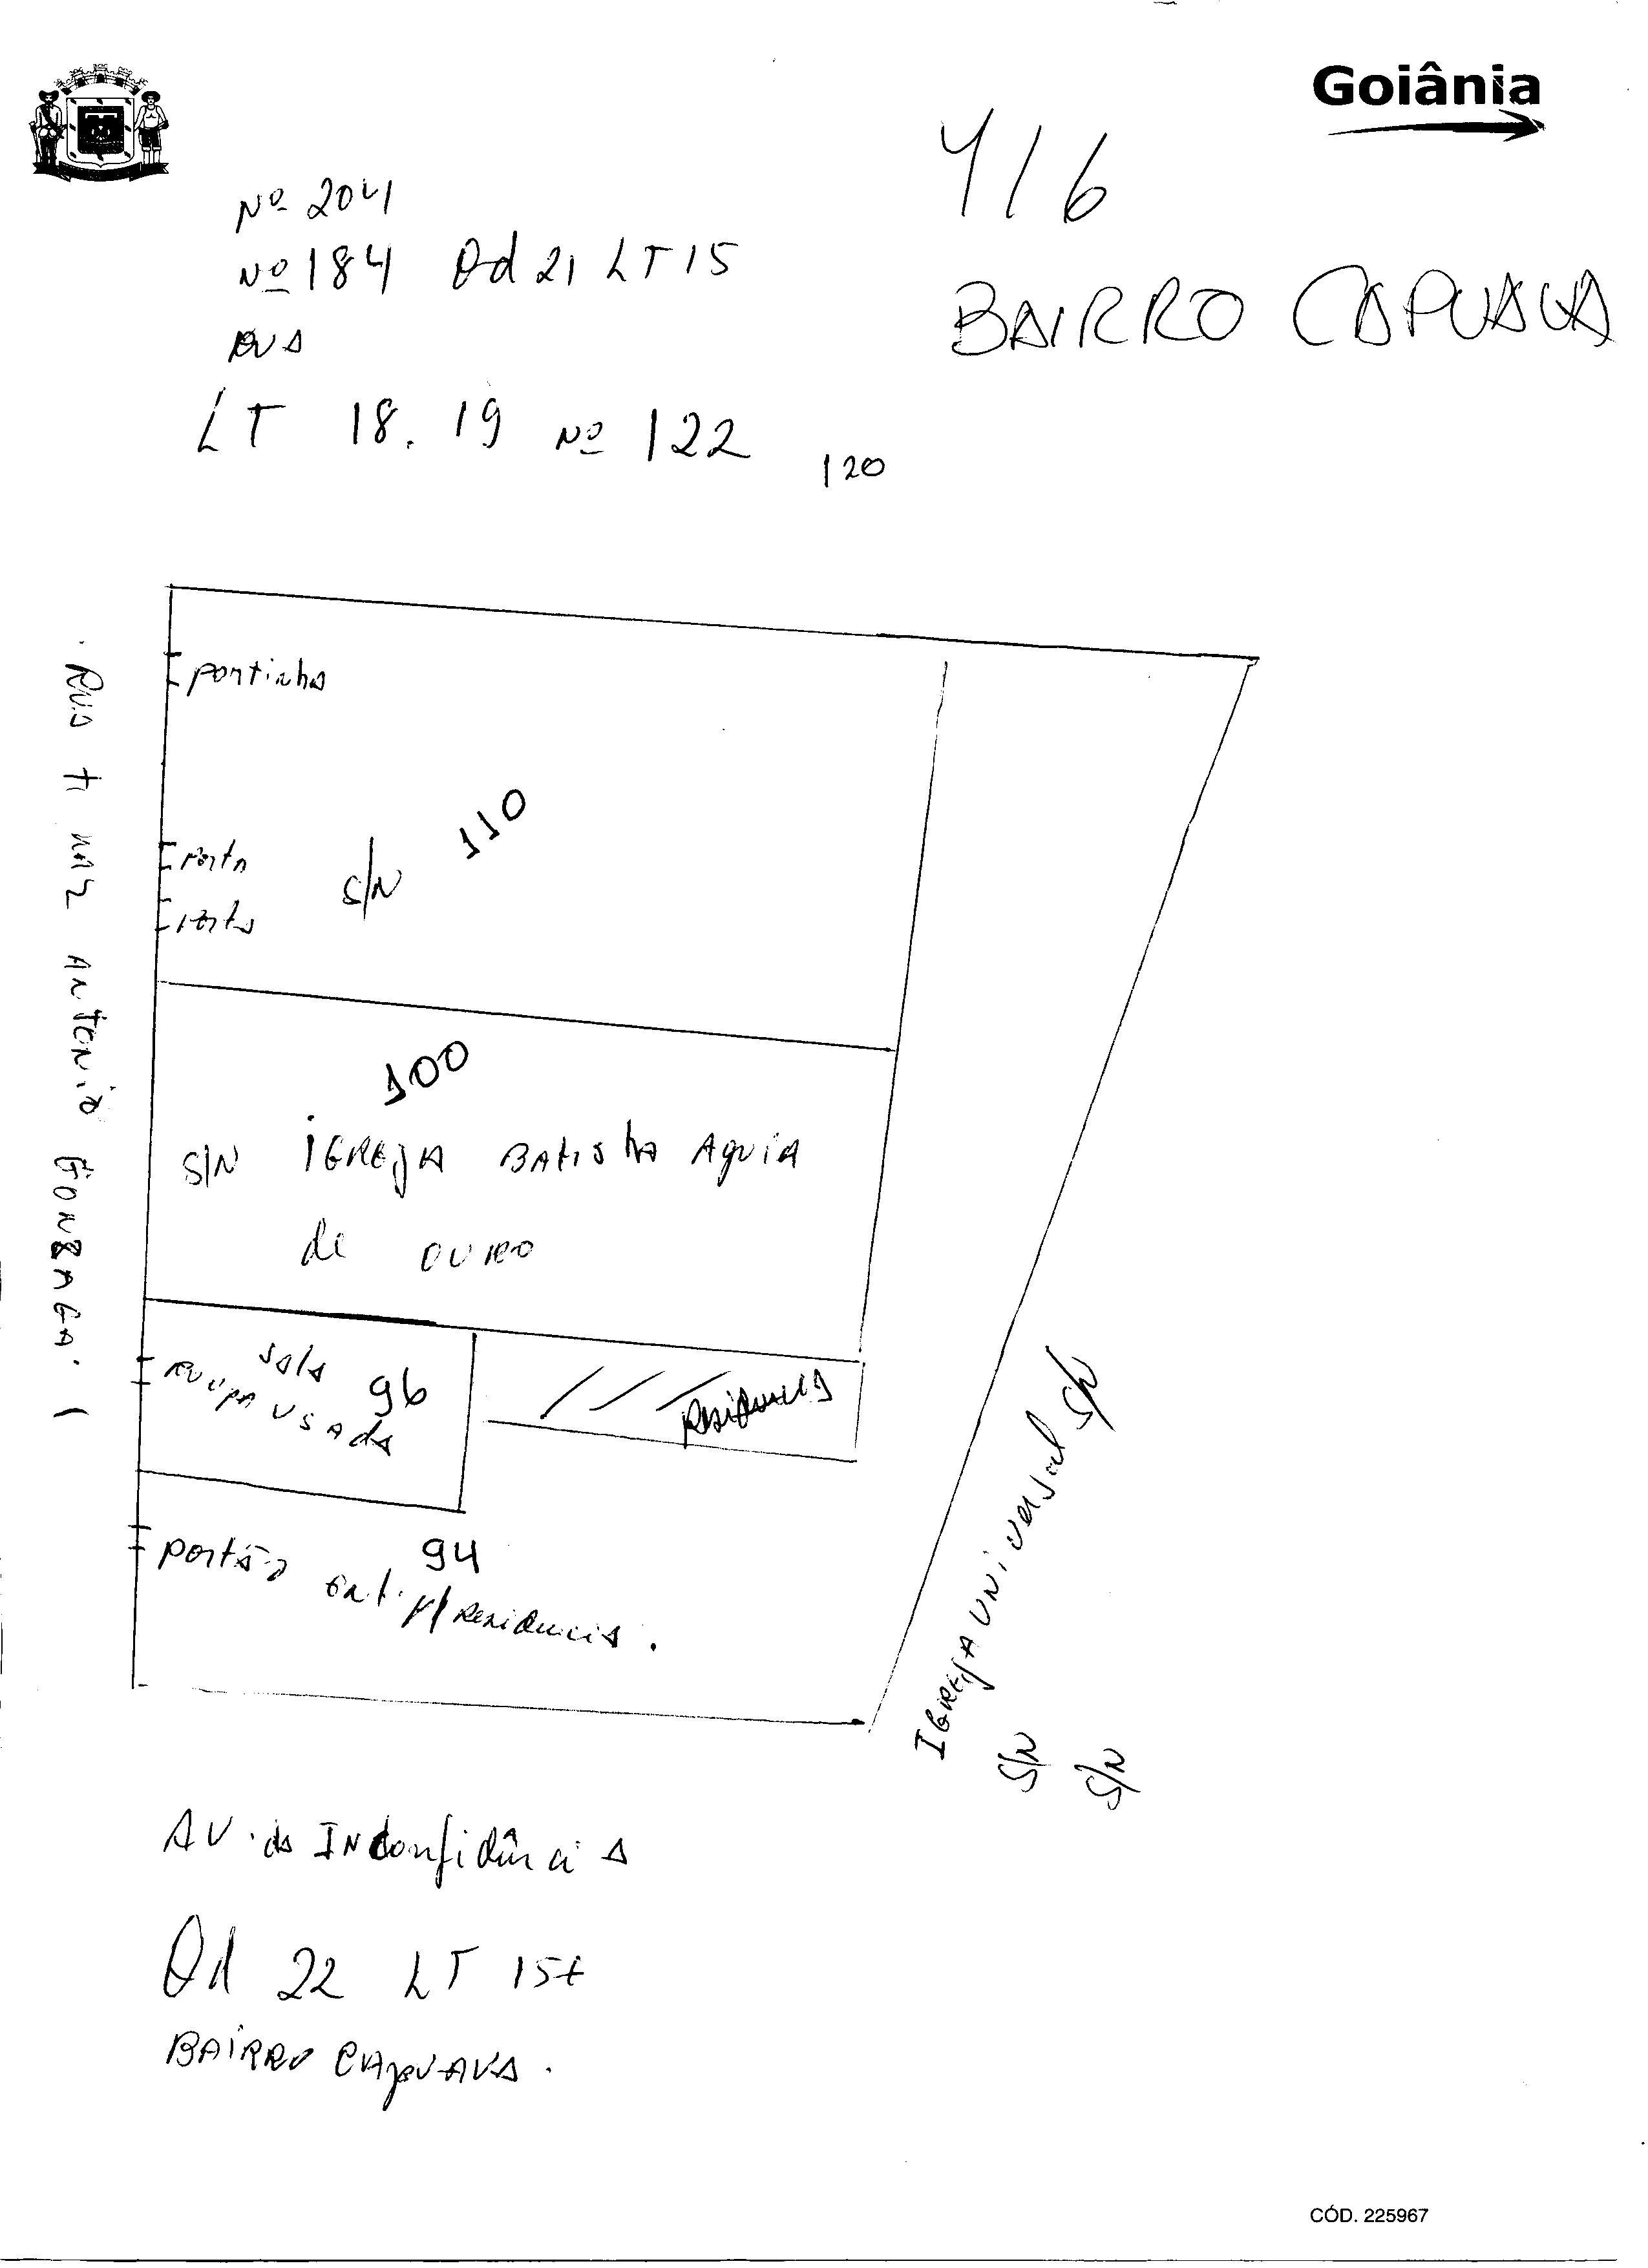 Goiânia
416
Nº 2041
Nº 184 Qd 21 LT 15
BAIRRO CAPUAVA
RUA
LT 18. 19 Nº 122 120
portinha
110
porta
S/N
porta
100
S/N IGREJA BATISTA AGUIA
de OURO
sala
96
ROUPA USADA
Residencia
94
portão ent. p/ Residencia.
ANTONIO GONZAGA.
IGREJA UNIVERSAL S/N
S/N
S/N
AV. da INconfidência
Qd 22 LT 15+
BAIRRO CAPUAVA.
CÓD. 225967